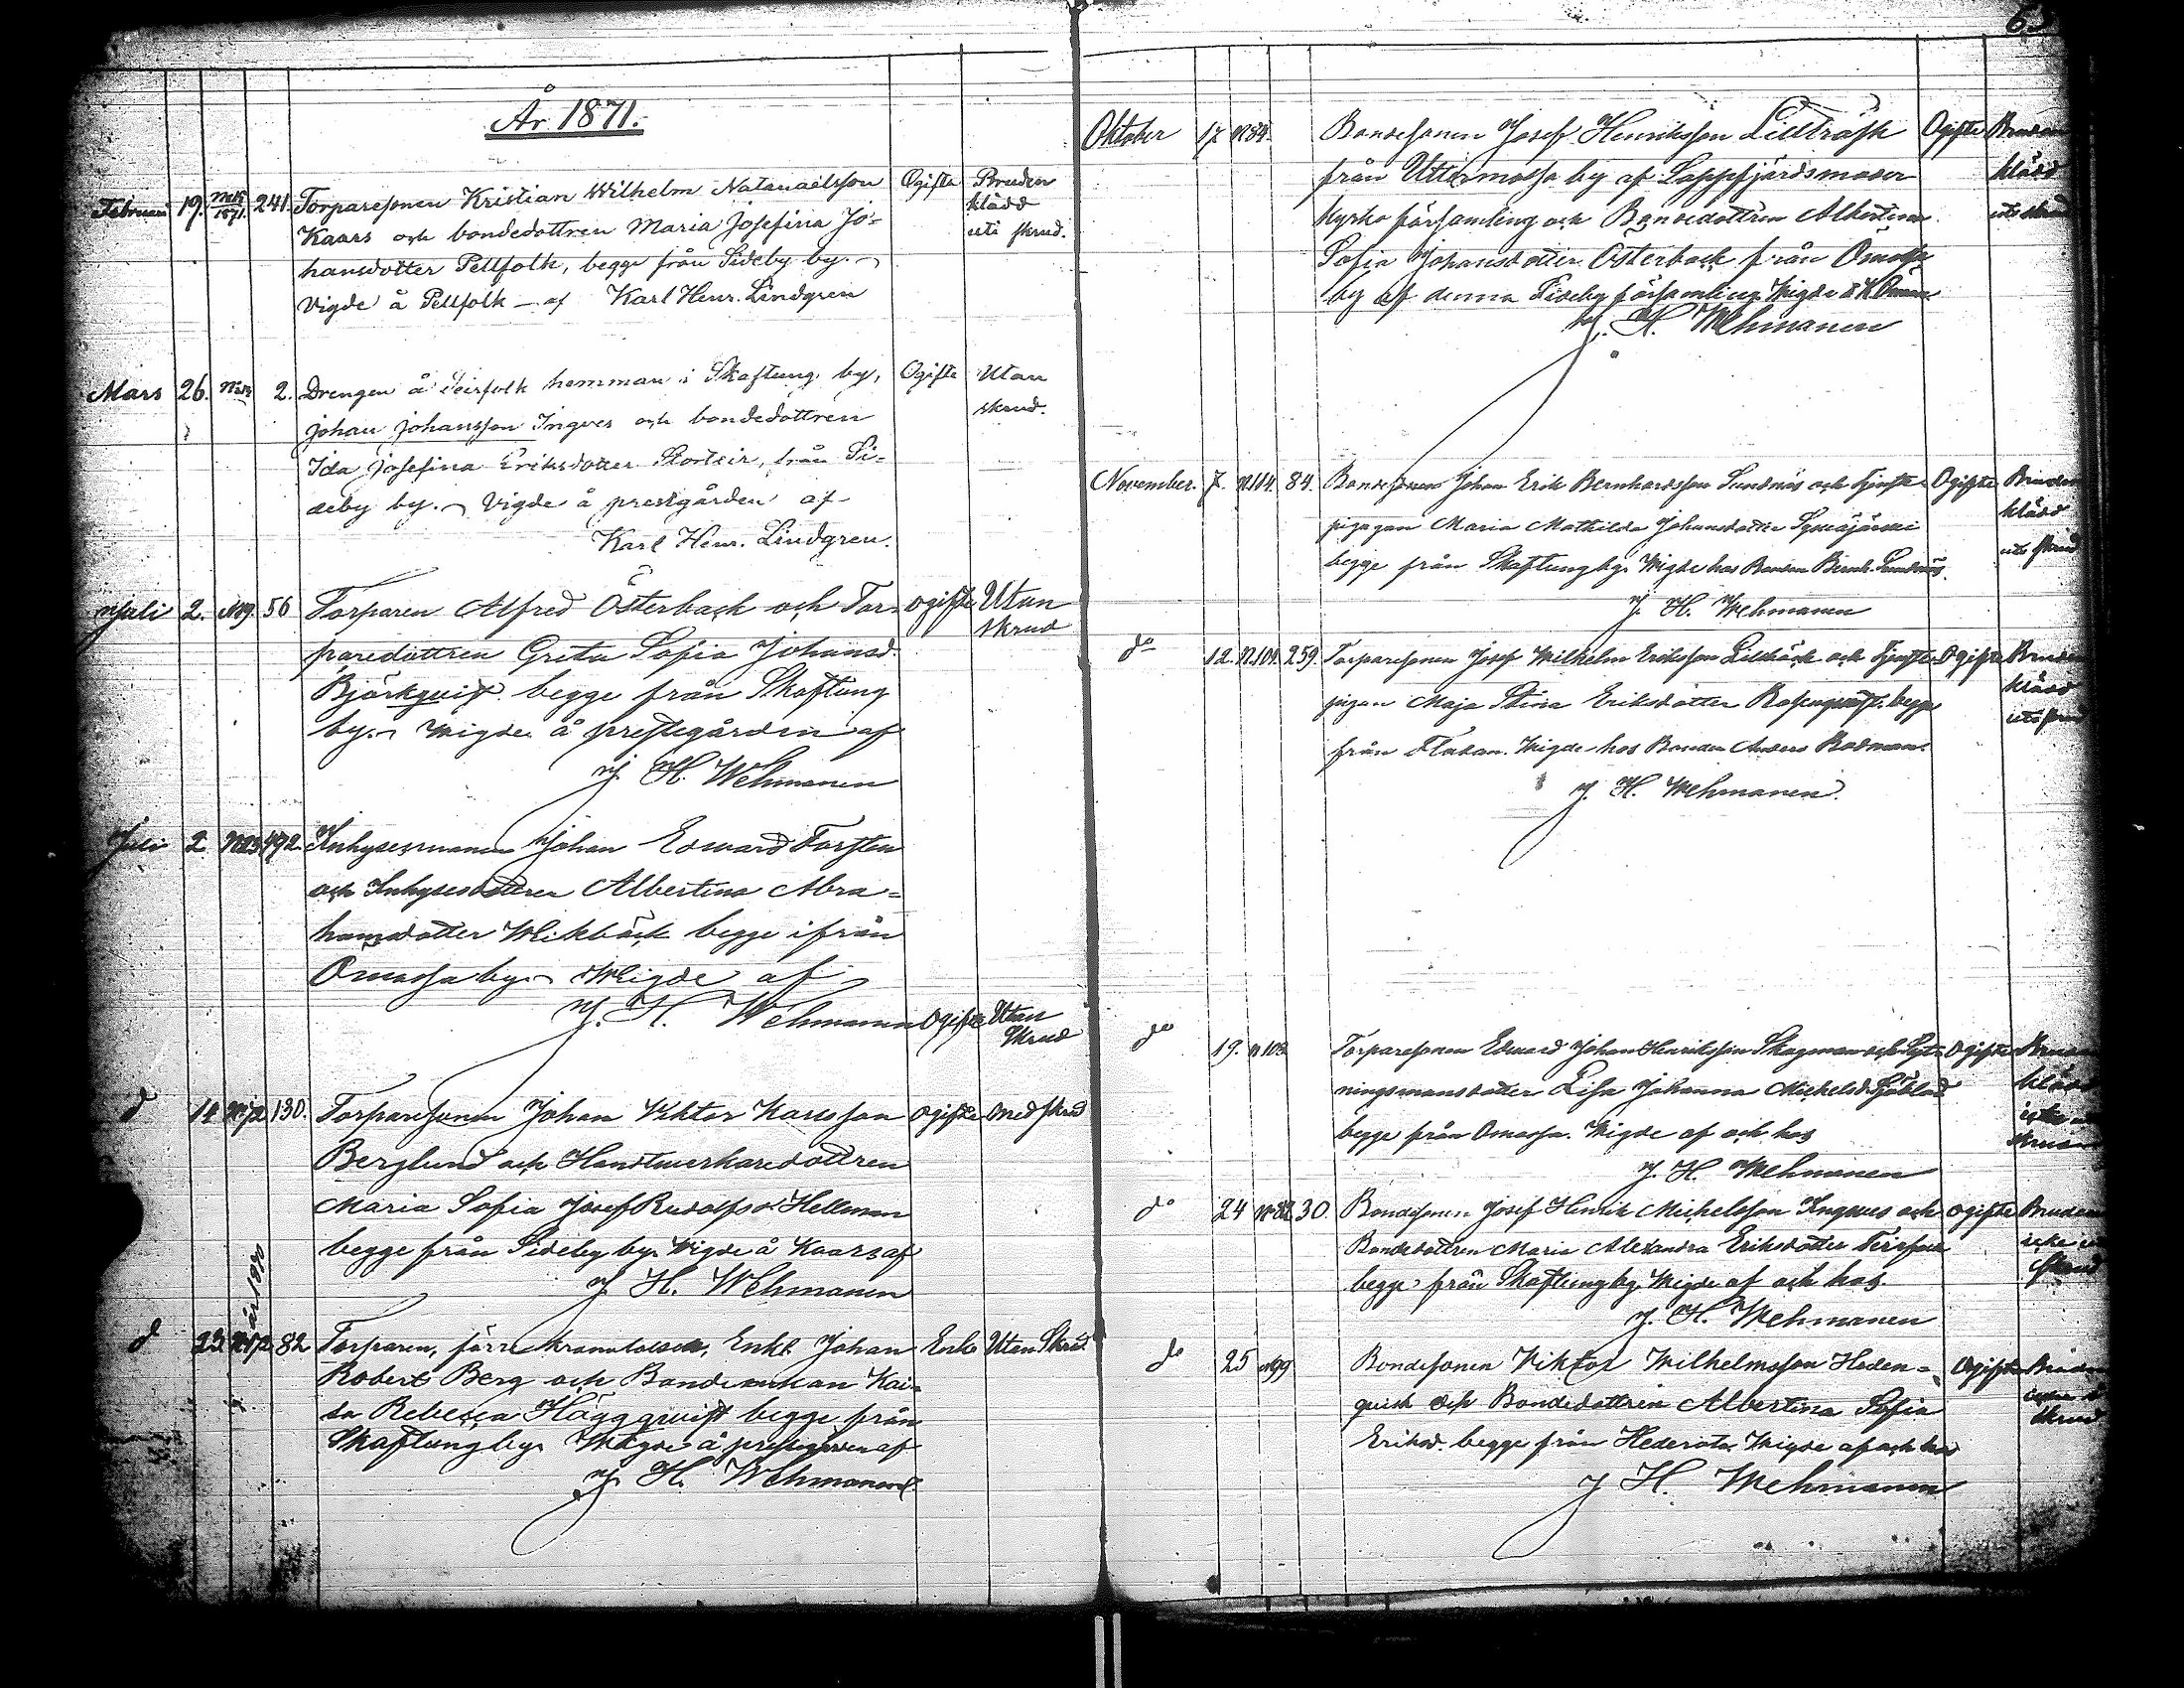 År 1871.
Februari 19. 1871. 241. Torparesonen Kristian Wilhelm Natanaelsson Ogifta Bruden
Kaars och bondedottren Maria Josefina Jo- klädd
hansdotter Pellfolk, begge från Sideby by. uti skrud.
Vigde å Pellfolk - af Karl Henr. Lindgren
Mars 26. 2. Drengen å Teirfolk hemman i Skaftung by, Ogifte Utan
Johan Johansson Ingves och bondedottren skrud.
Ida Josefina Eriksdotter Storteir, från Si-
deby by. Vigde å prestgården af
Karl Henr. Lindgren.
Juli 2. 56 Torparen Alfred Österback och Tor- ogifte Utan
paredottren Greta Sofia Johansd. skrud
Björkqvist begge från Skaftung
by. Wigde å prestegården af
J. H. Wehmanen
Juli 2 Inhysesmannen Johan Edward Forsten
och Inhysesdottren Albertina Abra=
hamsdotter Wikbäck begge ifrån
Ömossa by. Wigde af
J. H. Wehmanen Ogifte Utan
Skrud
d 14 130. Torparesonen Johan Viktor Karlsson ogifte med skrud
Berglund och Handtverkaredottren
Maria Sofia Josef Rudolfsd. Hellman
begge från Sideby by. Wigde å Kaars af
J. H. Wehmanen
år 1870
d 23 82 Torparen, förre Enkl. Johan Enkl. Utan Skrud
Robert Berg och Bondeenkan Kai=
sa Rebecca Häggqvist begge från
Skaftung by. Wigde å prestegården af
J. H. Wehmanen
Oktober 17 N 84. Bondesonen Josef Henriksson Lillträsk Ogifte Bruden
från Uttermossa by af Lappfjärds moder klädd
kyrko församling och Bondedottren Albertina uti skrud
Sofia Johansdotter Österback från Ömossa
by af denna Sideby församling. Wigde å
J. H. Wehmanen
November. 7. N.114. 84. Bondesonen Johan Erik Bernhardsson Sundnäs och Tjenste- Ogifte Bruden
pigan Maria Mathilda Johansdotter klädd
begge från Skaftung by. Wigde hos Bonden Bernh. Sundnäs. uti skrud
J. H. Wehmanen
do 12. N.104. 259. Torparesonen Josef Wilhelm Eriksson Lillbäck och Tjenste Ogifte Bruden
pigan Maja Stina Eriksdotter Rosenqvist. begge klädd
från Fladan. Wigde hos Bonden Anders Rodman. uti skrud
J. H. Wehmanen.
do 19. N 103 Torparesonen Edward Johan Henriksson Skagman och Ogifte Bruden
ningsmansdotter Lisa Johanna Michelsd. Sjöblad klädd
begge från Ömossa. Wigde af och hos icke
J. H. Wehmanen skrud
do 24 N 82 30. Bondesonen Josef Henrik Michelsson Ingves och ogifte Bruden
Bondedottren Maria Alexandra Eriksdotter Teirfolk icke
begge från Skaftung by. Wigde af och hos skrud
J. H. Wehmanen
do 25 N 99 Bondesonen Viktor Wilhelmsson Heden= Ogifte Bruden
qvist och Bondedottren Albertina Sofia
Eriksd. begge från Hedeväta. Wigde af och hos skrud
J H. Wehmanen